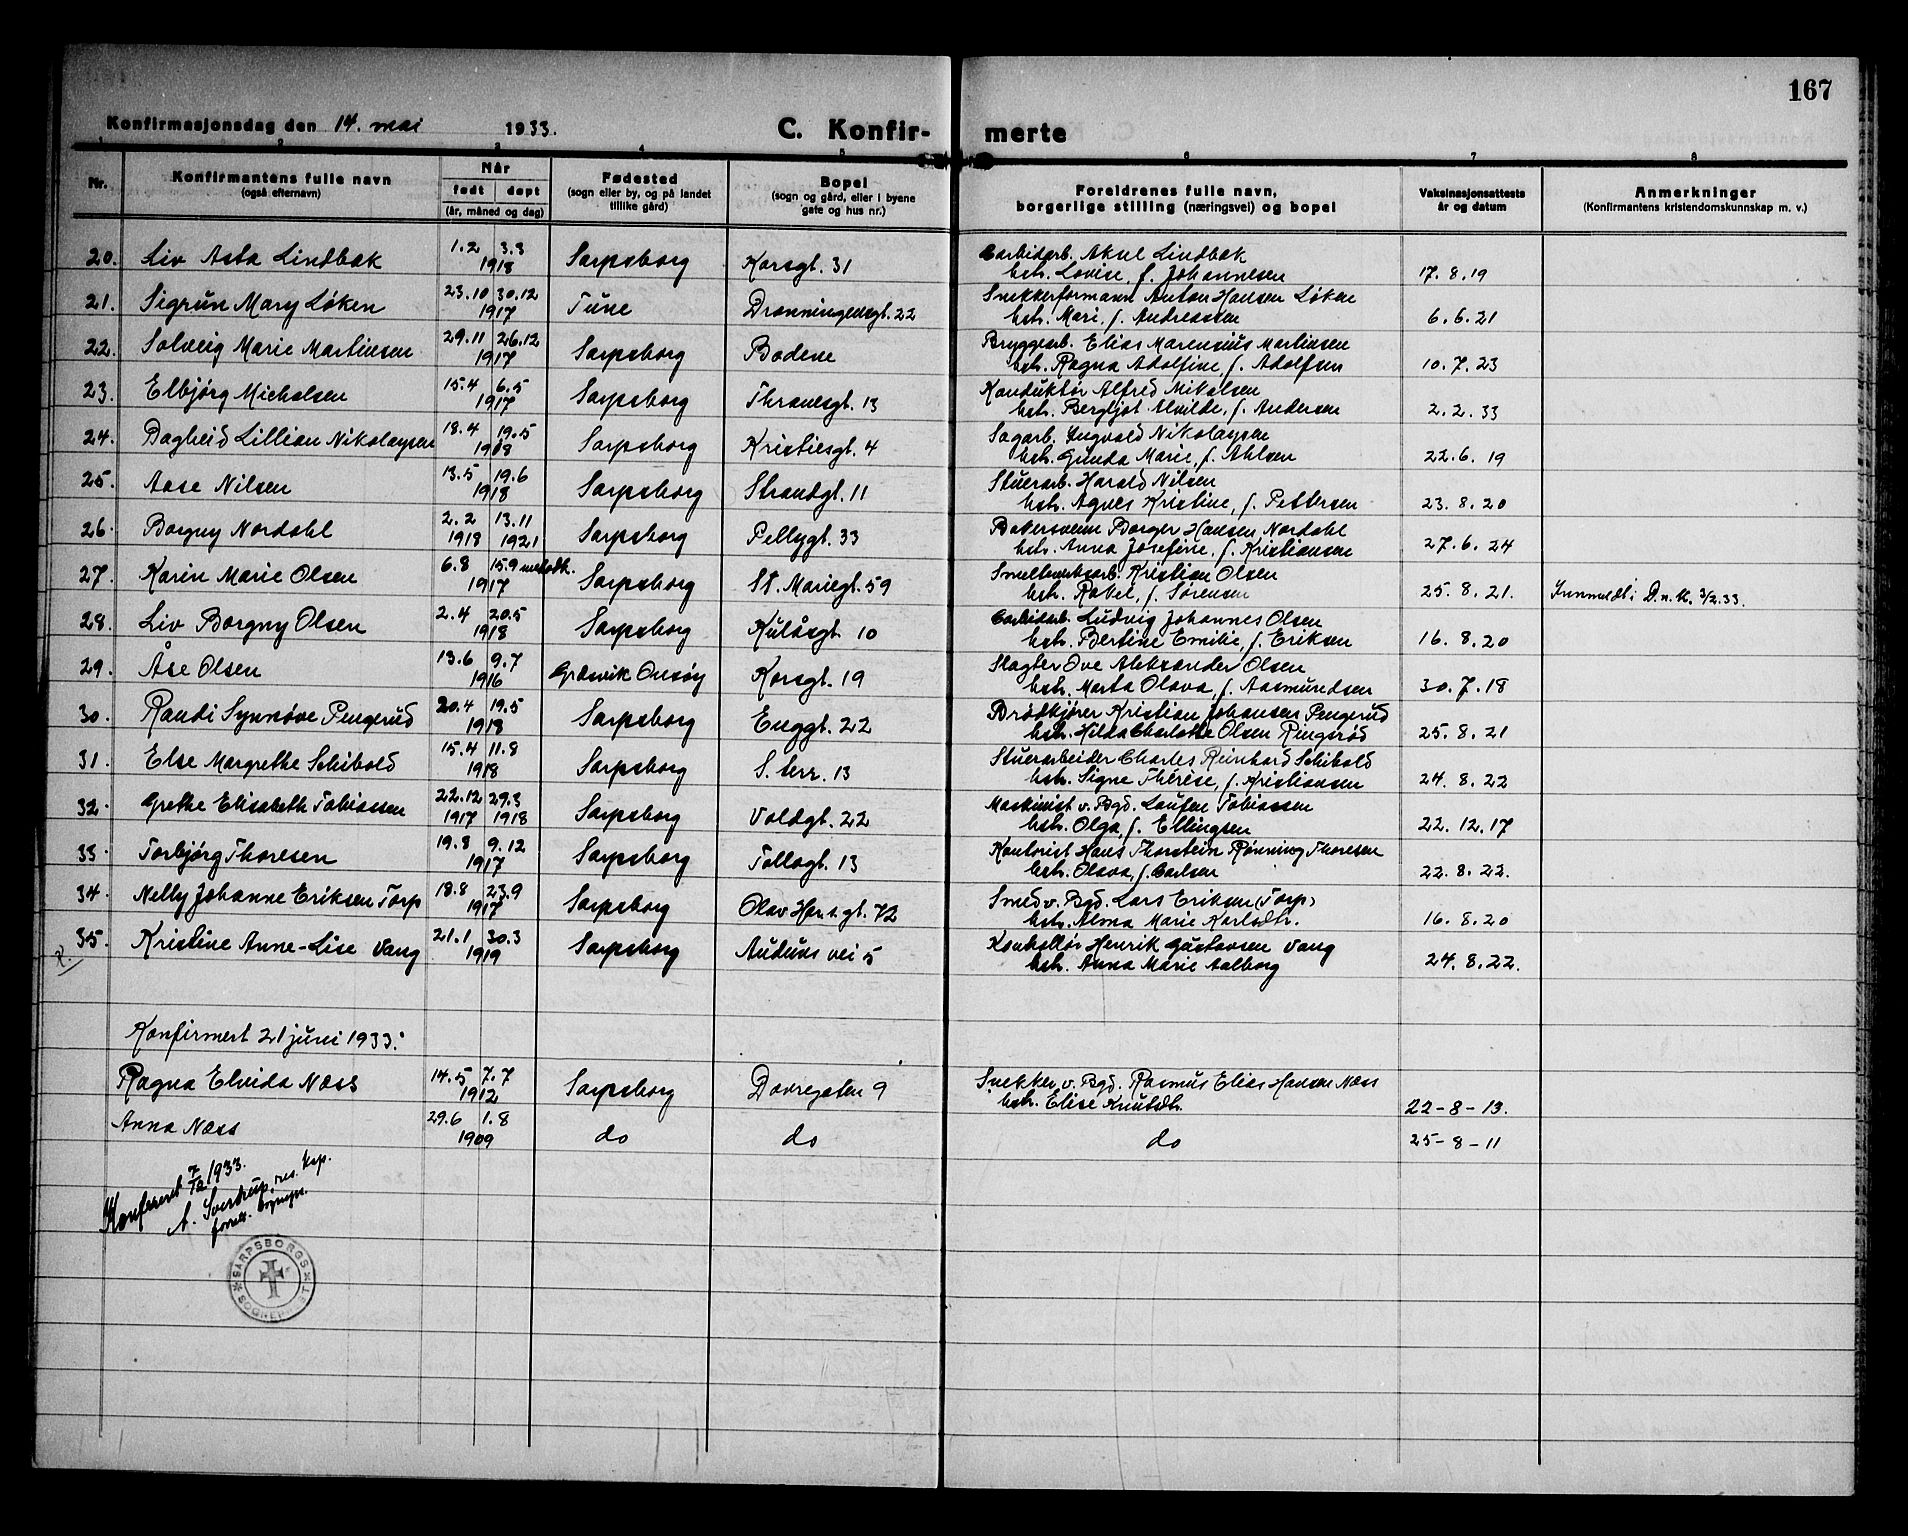 167
Konfirmasjonsdag den 14. mai 1933.
C. Konfir-
merte
1 2 3 4 5 6 7 8
Nr.
Konfirmantens fulle navn
(også efternavn)
Når
født døpt
(år, måned og dag)
Fødested
(sogn eller by, og på landet
tillike gård)
Bopel
(sogn og gård, eller i byene
gate og hus nr.)
Foreldrenes fulle navn,
borgerlige stilling (næringsvei) og bopel
Vaksinasjonsattests
år og datum
Anmerkninger
(Konfirmantens kristendomskunnskap m. v.)
20. Liv Asta Lindbak 1.2 3.3 1918 Sarpsborg Korsgt. 31 Carbidarb. Aksel Lindbak
hstr. Lovise, f. Johannesen 17.8.19
21. Sigrun Mary Løken 23.10 30.12 1917 Tune Dronningensgt. 22 Snekkerformann Anton Hansen Løken
hstr. Mari, f. Andreassen 6.6.21
22. Solveig Marie Martinsen 29.11 26.12 1917 Sarpsborg Bodene Bryggearb. Elias Marensius Martinsen
hstr. Ragna Adolfine, f. Adolfsen 10.7.23
23. Elbjørg Michalsen 15.4 6.5 1917 Sarpsborg Thranesgt. 13 Konduktør Alfred Mikalsen
hstr. Bergljot Alvilde, f. Andersen 2.2.33
24. Dagheid Lillian Nikolaysen 18.4 19.5 1918 Sarpsborg Kristiesgt. 4 Sagarb. Ingvald Nikolaysen
hstr. Gunda Marie, f. Ahlsen 22.6.19
25. Aase Nilsen 13.5 19.6 1918 Sarpsborg Strandgt. 11 Stuerarb. Harald Nilsen
hstr. Agnes Kristine, f. Pettersen 23.8.20
26. Borgny Nordahl 2.2 1918 13.11 1921 Sarpsborg Pellygt. 33 Bakersvenn Borger Hansen Nordahl
hstr. Anna Josefine, f. Kristiansen 27.6.24
27. Karin Marie Olsen 6.8 15.9 metodk. 1917 Sarpsborg St. Mariegt. 59 Smelteverksarb. Kristian Olsen
hstr. Rakel, f. Sørensen 25.8.21. Innmeldt i D.n.K. 3/2.33.
28. Liv Borgny Olsen 2.4 20.5 1918 Sarpsborg Kulåsgt. 10 Carbidarb. Ludvig Johannes Olsen
hstr. Bertine Emilie, f. Eriksen 16.8.20
29. Åse Olsen 13.6 9.7 1916 Græsvik Onsøy Korsgt. 19 Slagter Ove Aleksander Olsen
hstr. Marta Olava, f. Aasmundsen 30.7.18
30. Randi Synnøve Pengerud 20.4 19.5 1918 Sarpsborg Enggt. 22 Brødkjører Kristian Johansen Pengerud
hstr. Hilda Charlotte Olsen Ringsrød 25.8.21
31. Else Margrethe Schibold 15.4 11.8 1918 Sarpsborg S. terr. 13 Stuerarbeider Charles Reinhard Schibold
hstr. Signe Thérèse, f. Kristiansen 24.8.22
32. Grethe Elisabeth Tobiassen 22.12 1917 29.3 1918 Sarpsborg Voldgt. 22 Maskinist v. Bgd. Lauten Tobiassen
hstr. Olga, f. Ellingsen 22.12.17
33. Torbjørg Thoresen 19.8 9.12 1917 Sarpsborg Tollogt. 13 Kontorist Hans Thorstein Rønning Thoresen
hstr. Olava, f. Carlsen 22.8.22.
34. Nelly Johanne Eriksen Torp 18.8 23.9 1917 Sarpsborg Olav Har. s. gt. 72 Smed v. Bgd. Lars Eriksen (Torp)
hstr. Alma Marie Karlsdtr. 16.8.20
35. Kristine Anne-Lise Vang 21.1 30.3 1919 Sarpsborg Auduns vei 5 Kontrollør Henrik Gustavsen Vang
hstr. Anna Marie Aalborg 24.8.22.
Konfirmert 21 juni 1933:
Ragna Elvida Næss 14.5 7.7 1912 Sarpsborg Dovregaten 9 Snekker v. Bgd. Rasmus Elias Hansen Næss
hstr. Elise Knutsdtr. 22-8-13.
Anna Næss 29.6 1.8 1909 do do do 25-8-11
Konferert 7/12 1933.
A. Sverdrup, res. kap.
SARPSBORGS SOGNEPREST